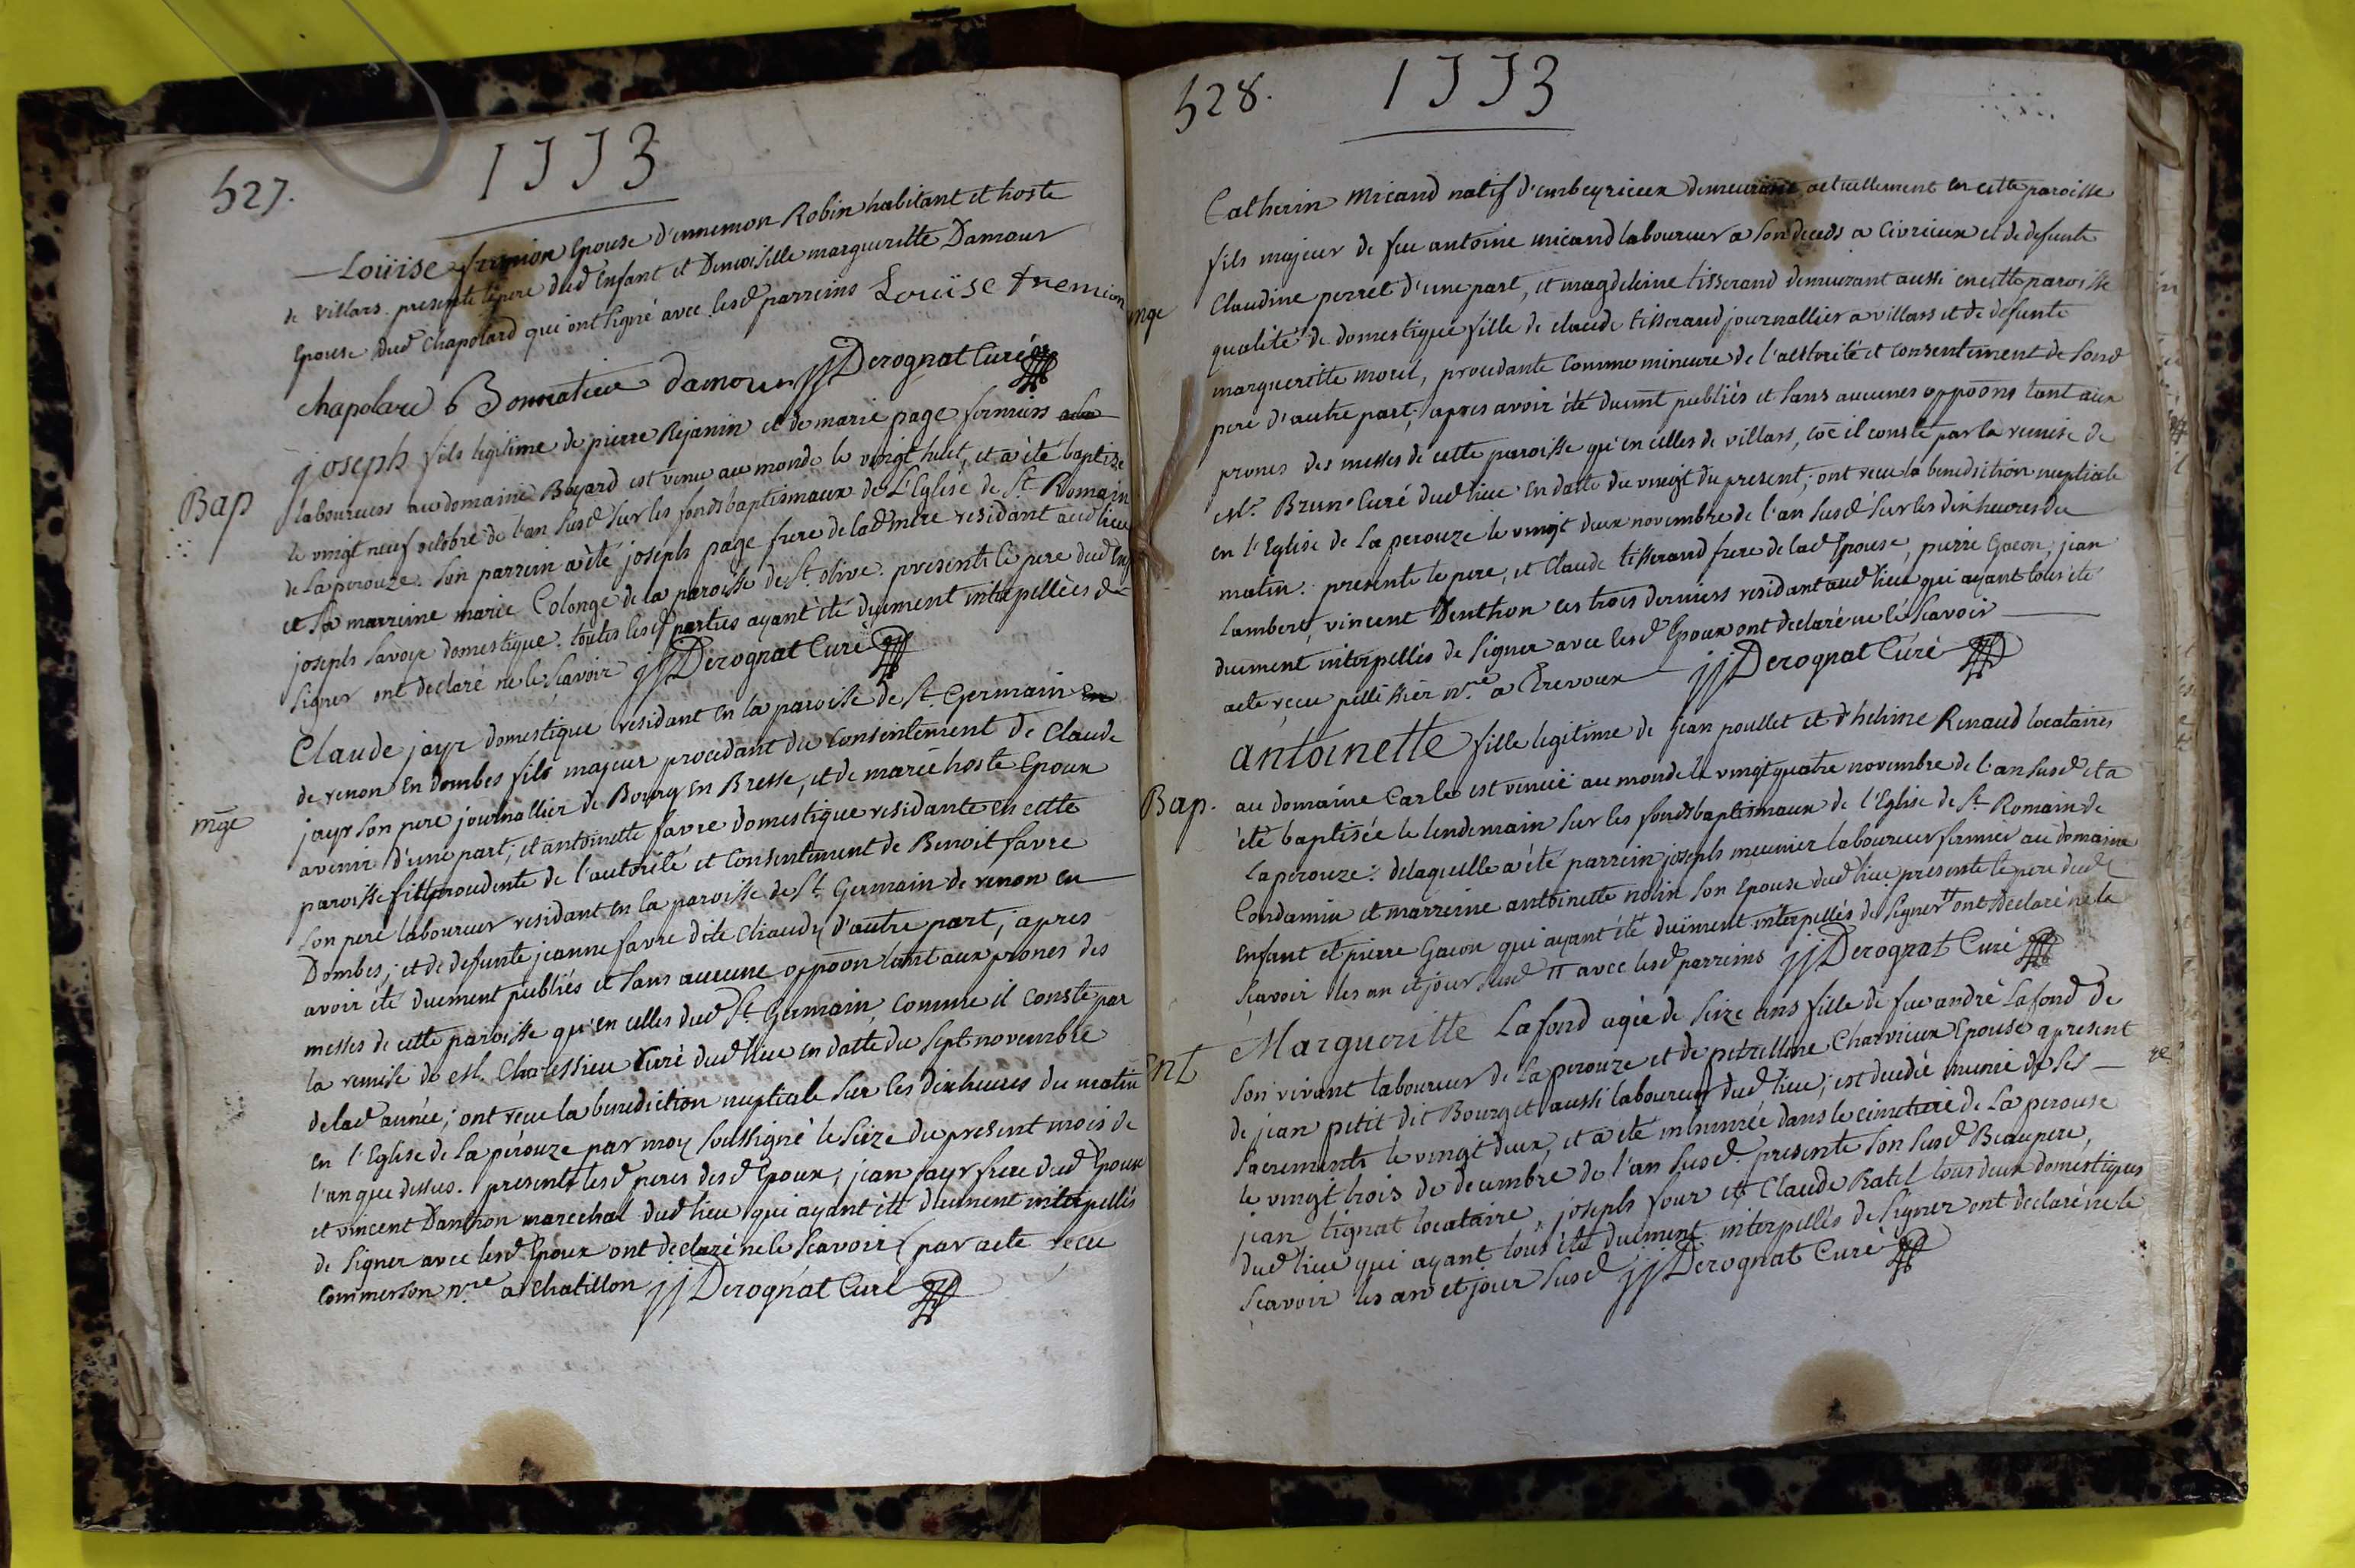 527.
1773
Loüise fremion Epouse d'ennemon Robin habitant et hoste
de Villars. presente le pere dud Enfant et Demoiselle margueritte Damour
Epouse dud Chapolard qui ont signé avec lesd parreins Loüise fremion
chapolard Bonnatier damour jjDerognat Curé
Bap
joseph fils legitime de pierre Rejanin et de marie page fermiers
laboureurs au domaine Boyard est venu au monde le vingt huit, et a èté baptisé
le vingt neuf octobre de l'an susd sur les fonds baptismaux de L'Eglise de St Romain
de La perouze. son parrein a èté joseph page frere de lad mere residant aud lieu
et sa marreine marie Colonge de la paroisse de St. olive. presents le pere dud Enf
joseph Savoye domestique. toutes lesd parties ayant èté duement interpellées de
signer ont declaré ne le sçavoir jjDerognat Curé
mge
Claude jayr domestique residant en la paroisse de St. Germain en
de renon En dombes fils majeur procedant du consentement de Claude
jayr son pere journallier de Bourg en Bresse, et de marie hoste Epoux
avenir d'une part; et antoinette favre domestique residante en cette
paroisse fille procedente de l'autorité et Consentement de Benoit favre
son pere laboureur residant en la paroisse de St. Germain de renon en
Dombes; et de defunte jeanne favre dite Chaudy d'autre part; apres
avoir èté duement publiés et sans aucune oppoon tant aux prones des
messes de cette paroisse qu'en celles dud St. Germain, comme il conste par
la remise de Curé dud lieu en datte du sept novembre
de lad année; ont recu la benediction nuptiale sur les dix heures du matin
en l'Eglise de La pérouze par moy soussigné le seize du present mois de
l'an que dessus. presents lesd peres desd Epoux, jean jayr frere dud Epoux
et vincent Danthon marechal dud lieu qui ayant èté duement interpellés
de signer avec lesd Epoux ont declaré ne le sçavoir (par acte reçu
Commerson nre a Chatillon jjDerognat Curé
528.
1773
mge
Catherin Micand natif d'embeyrieux demeurant actuellement en cette paroisse
fils majeur de feu antoine micand laboureur a son deceds a Civrieux et de defunte
Claudine perret d'une part, et magdeleine tisserand demeurant aussi en cette paroisse
qualité de domestique fille de claude tisserand journallier a villars et de defunte
margueritte morel, procedante comme mineure de l'autorité et consentement de sond
pere d'autre part; apres avoir èté duemt publiés et sans aucunes oppoons tant aux
prones des messes de cette paroisse qu'en celles de villars, coe il conste par la remise de
Mr. Brun Curé dud lieu en datte du vingt du present; ont recu la benediction nuptiale
en l'Eglise de La perouze le vingt deux novembre de l'an susd sur les dix heures du
matin: presents le pere, et Claude tisserand frere de lad Epouse, pierre Gacon, jean
Lambert, vincent Denthon ces trois derniers residant aud lieu qui ayant tous èté
duement interpellés de signer avec lesd Epoux ont declaré ne le sçavoir
acte reçu pellissier nre a Trevoux jjDerognat Curé
Bap.
antoinette fille legitime de jean poullet et d'helene Renaud locataires
au domaine Carle est venüe au monde le vingt quatre novembre de l'an susd et a
èté baptisée le lendemain sur les fonds baptismaux de l'Eglise de St Romain de
La perouze: de laquelle a èté parrein joseph meunier laboureur fermier au domaine
Condamin et marreine antoinette nolin son Epouse dud lieu presents le pere dud
Enfant et pierre Gacon qui ayant èté duement interpellés de signer ont declaré ne le
sçavoir les an et jour susd avec lesd parreins jjDerognat Curé
Ent
Margueritte Lafond agée de seize ans fille de feu andré Lafond de
son vivant laboureur de La perouze et de petrellone Charvieux Epouse a present
de jean petit dit Bourget aussi laboureur dud lieu; est decedée munie de ses
sacrements le vingt deux, et a èté inhumée dans le cimetiere de La perouse
le vingt trois de decembre de l'an susd. presents son susd Beaupere,
jean tignat locataire, joseph four et Claude Ratel tous deux domestiques
dud lieu qui ayant tous èté duement interpellés de signer ont declaré ne le
sçavoir les an et jour susd jjDerognat Curé